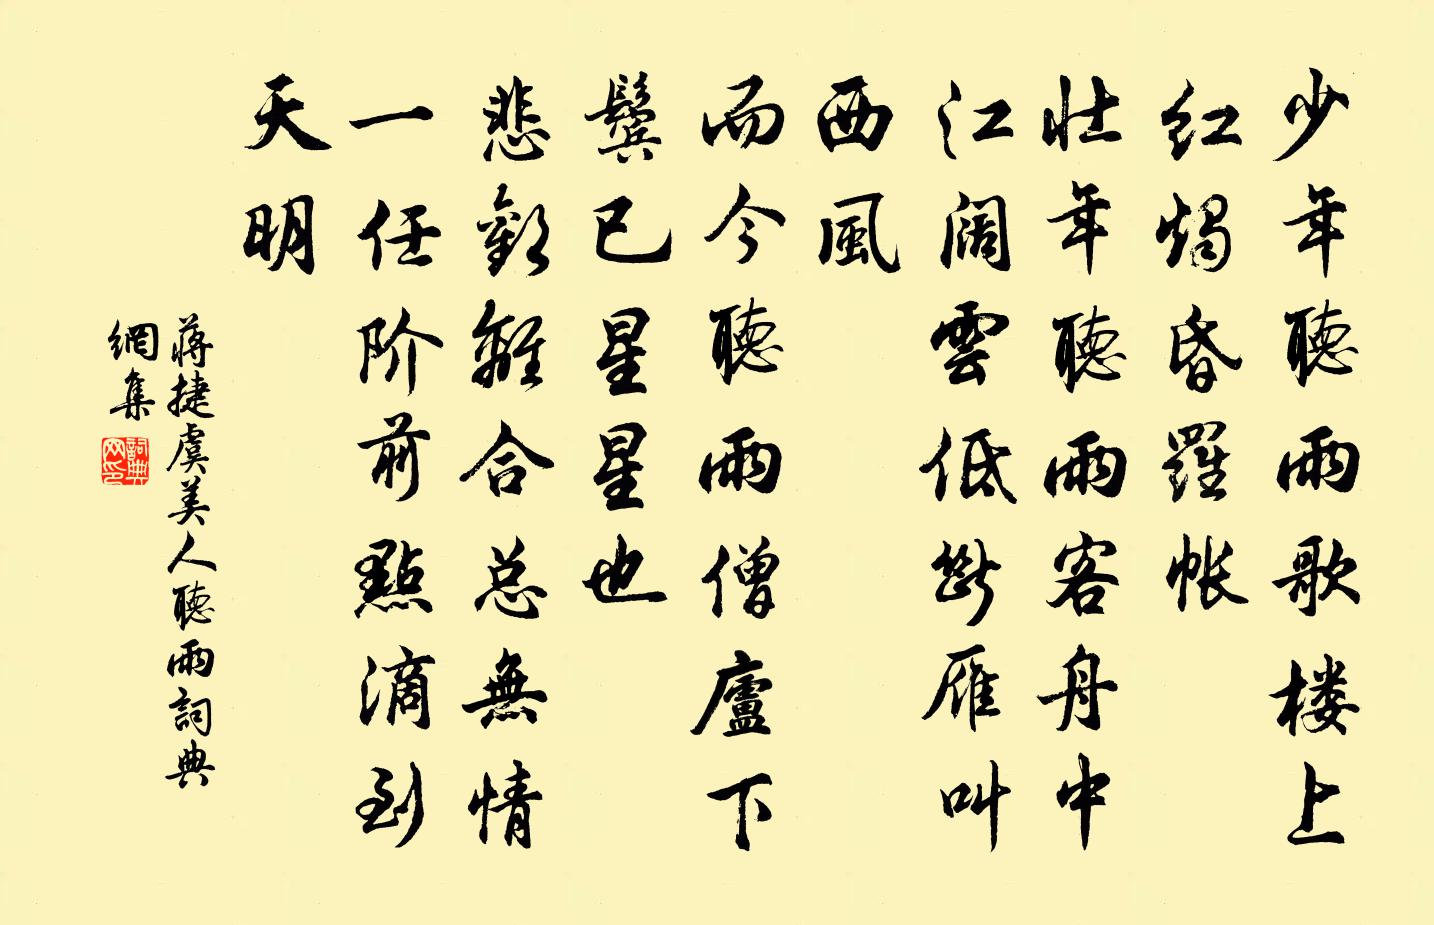 少年聽雨歌楼上
红燭昏羅帐
壮年聽雨客舟中
江阔雲低断雁叫
西風
而今聽雨僧廬下
鬓已星星也
悲歡離合总無情
一任阶前點滴到
天明
蒋捷虞美人聽雨詞典
網集
詞典
网印